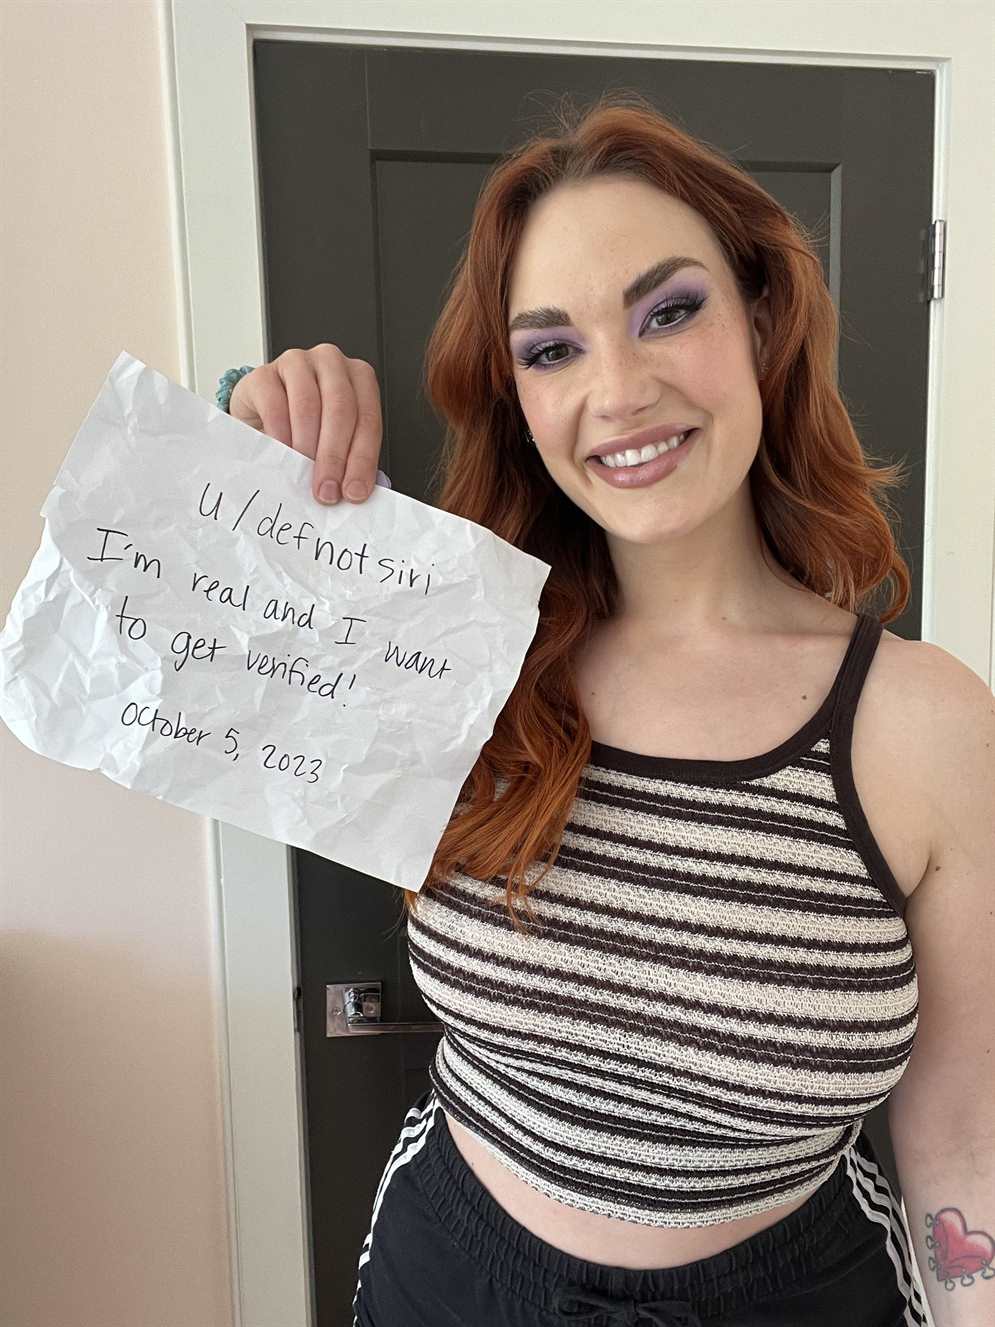 u/defnotsiri
I'm real and I want
to get verified!
October 5, 2023